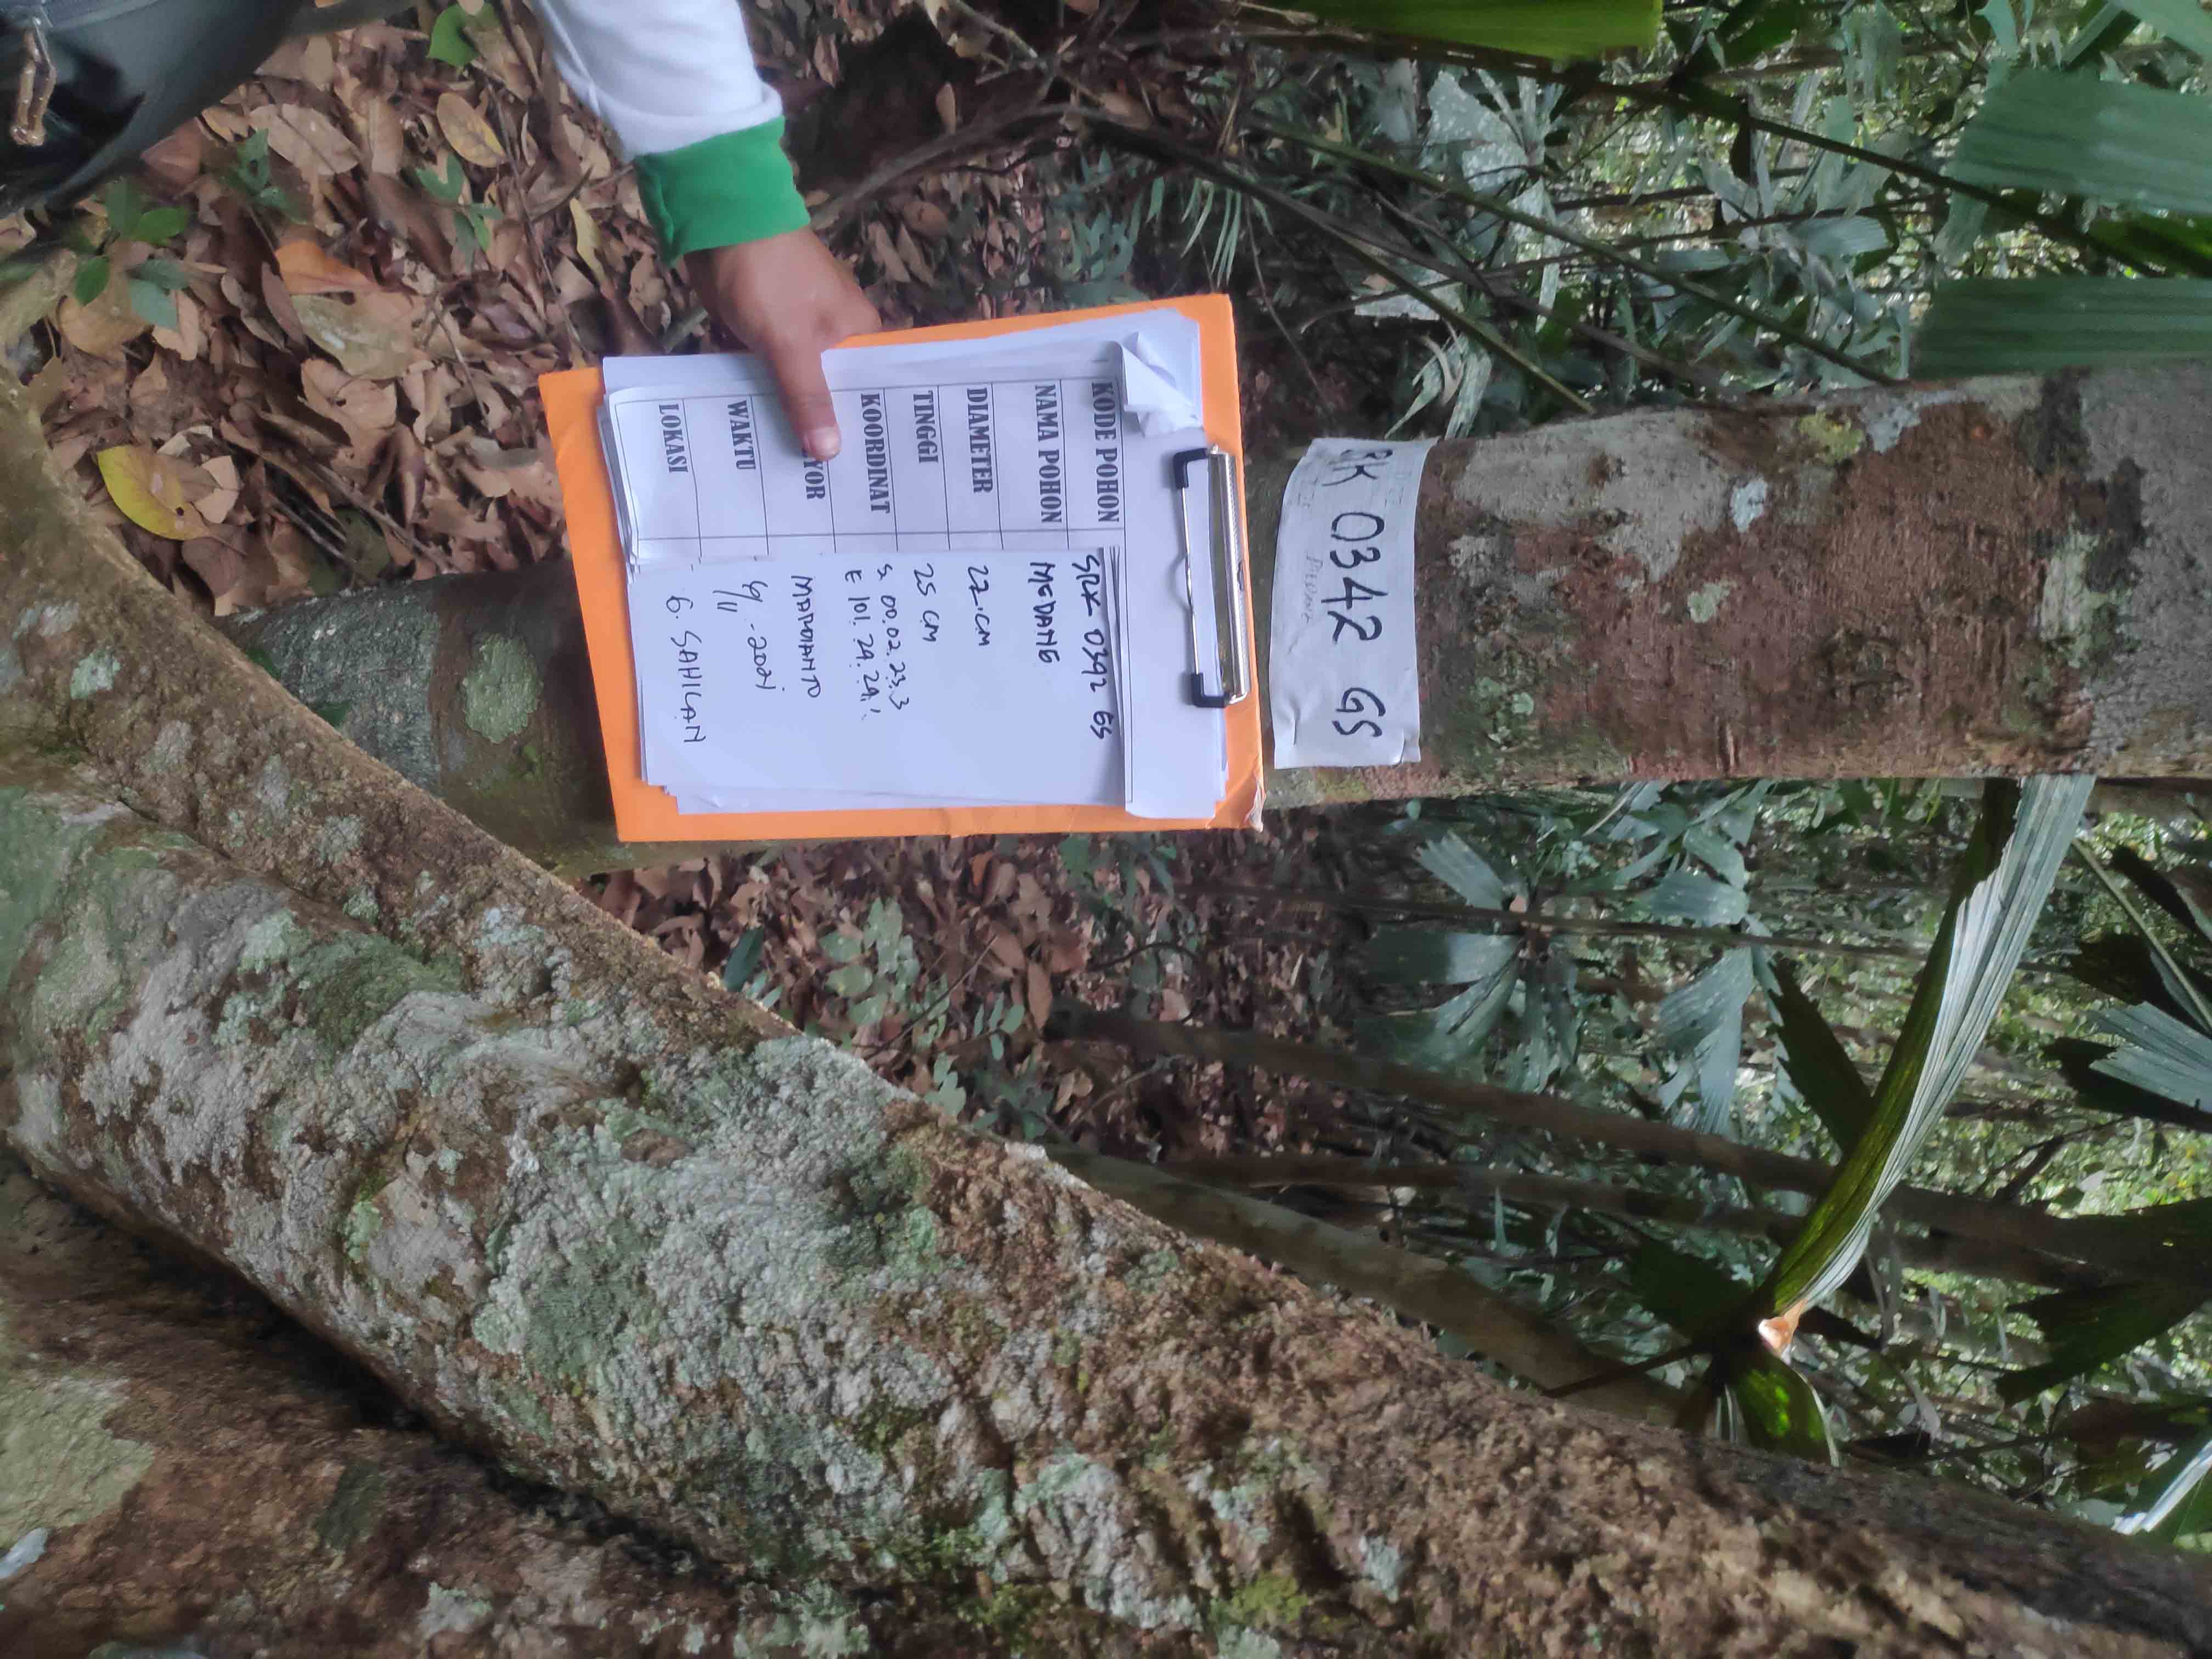 RK 0342 GS
MEDANG
KODE POHON SRK 0342 GS
NAMA POHON MEDANG
DIAMETER 27.CM
TINGGI 25 CM
KOORDINAT S 00.02.23.3
E 101.29.29.1
YOR MARDIANTO
WAKTU 6/11-2021
LOKASI G. SAHILAN